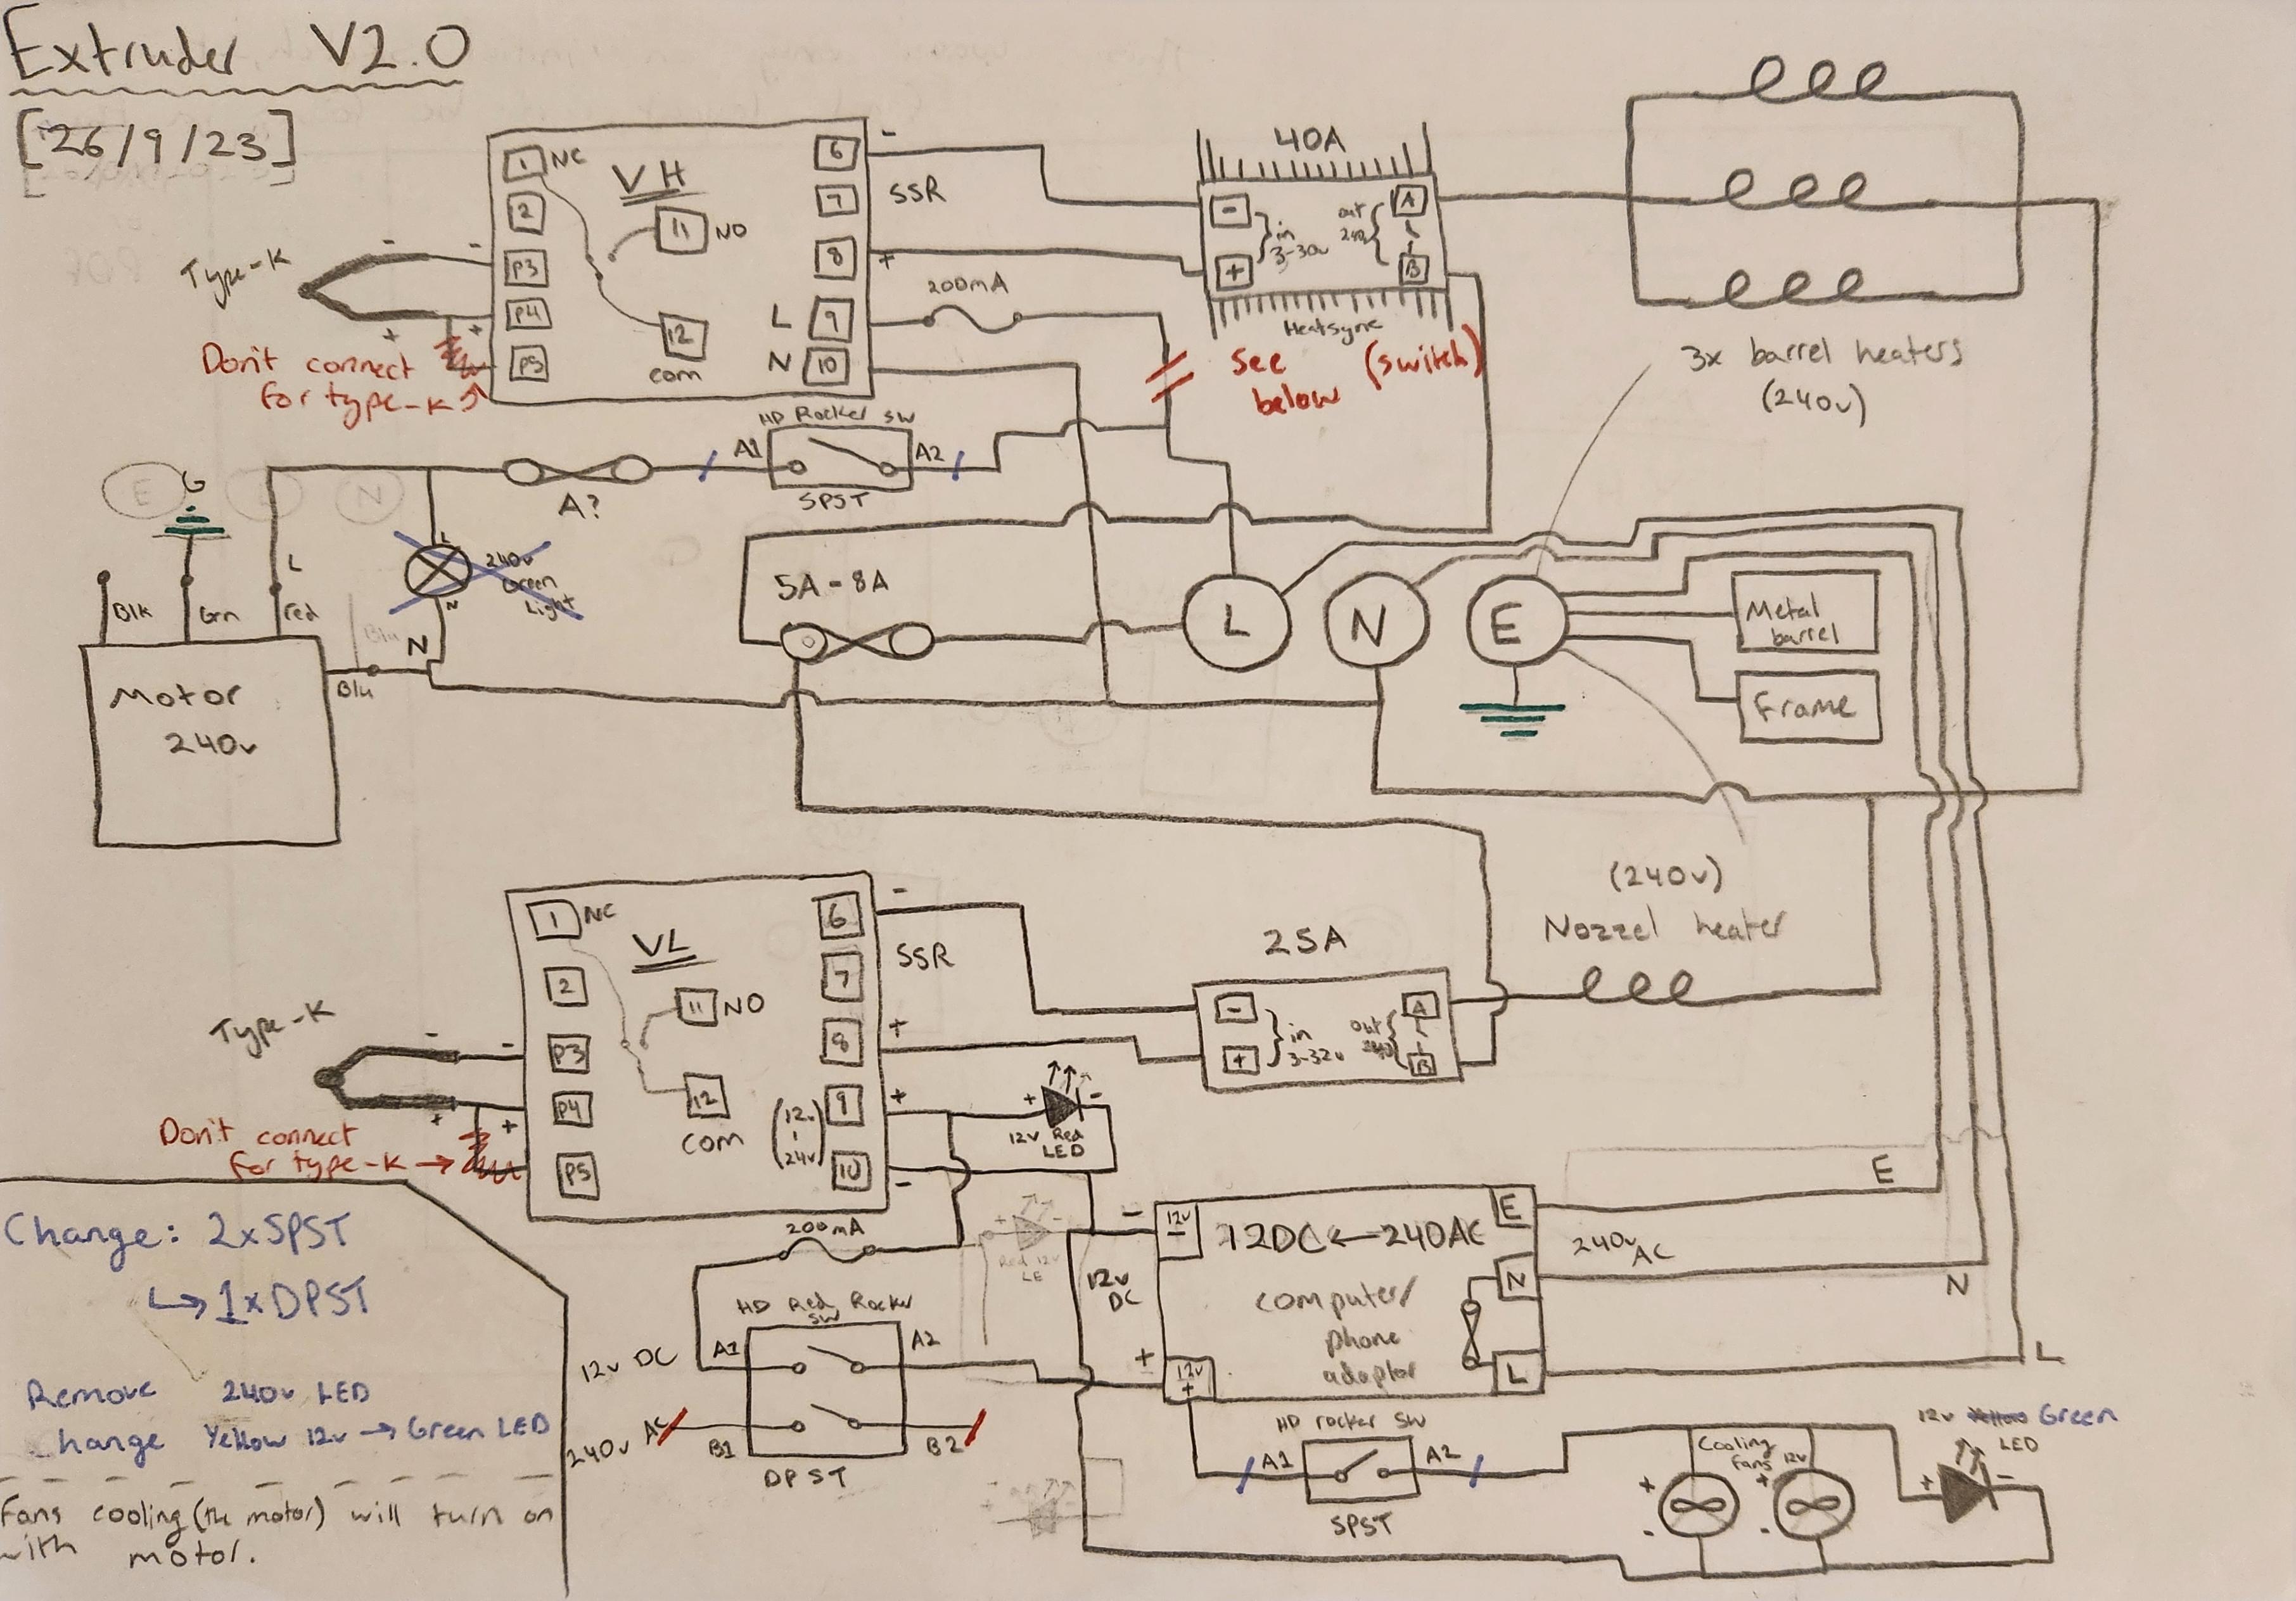 Extruder V2.0
[26/9/23]
1 NC
2
P3
P4
P5
VH
11 NO
12
com
6
7
8
L 9
N 10
-
SSR
+
200mA
Type-K
-
-
+
+
Don't connect
for type-K
40A
-
+
in
3-30v
out
240
A
B
Heatsync
See (switch)
below
3x barrel heaters
(240v)
HD Rocker SW
A1
A2
SPST
A?
E
L
N
G
L
Blk
Grn
Red
Blu
Blu
N
L
N
240v
Green
Light
Motor
240v
5A-8A
L
N
E
Metal
barrel
Frame
(240v)
Nozzel heater
1 NC
2
P3
P4
P5
VL
11 NO
12
COM
6
7
8
9
10
(12v
-
24v)
-
SSR
+
+
-
Type-K
-
-
+
+
Don't connect
for type-K →
25A
-
+
in
3-32v
out
A
B
+
-
12v Red
LED
200mA
Red 12v
LE
HD Red Rocker
SW
12v DC
A1
A2
240v AC
B1
B2
DPST
12v
DC
-
12v
-
+
12v
+
12DC←240AC
computer/
phone
adaptor
E
N
L
E
240v
AC
N
L
HD rocker SW
A1
A2
SPST
Cooling
fans 12v
+
-
+
-
12v Yellow Green
LED
+
-
Change: 2xSPST
↳ 1xDPST
Remove 240v LED
change Yellow 12v → Green LED
Fans cooling (the motor) will turn on
with motor.